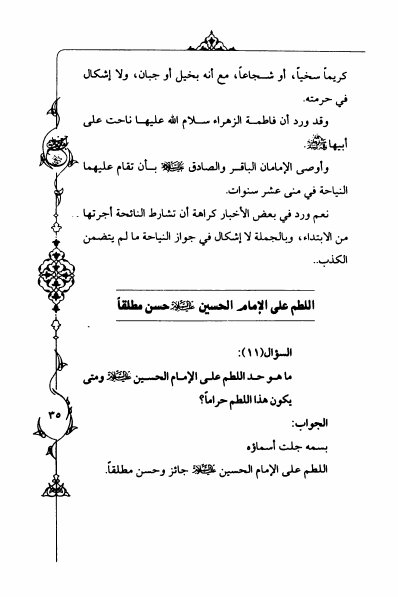 كريماً سخياً، أو شجاعاً، مع أنه بخيل أو جبان، ولا إشكال
في حرمته.
وقد ورد أن فاطمة الزهراء سلام الله عليها ناحت على
أبيها ﷺ.
وأوصى الإمامان الباقر والصادق عليهما السلام بأن تقام عليهما
النياحة في منى عشر سنوات.
نعم ورد في بعض الأخبار كراهة أن تشارط النائحة أجرتها
من الابتداء، وبالجملة لا إشكال في جواز النياحة ما لم يتضمن
الكذب..
اللطم على الإمام الحسين عليه السلام حسن مطلقاً
السؤال(١١):
ما هو حد اللطم على الإمام الحسين عليه السلام ومتى
يكون هذا اللطم حراماً؟
الجواب:
بسمه جلت أسماؤه
اللطم على الإمام الحسين عليه السلام جائز وحسن مطلقاً.
٣٥